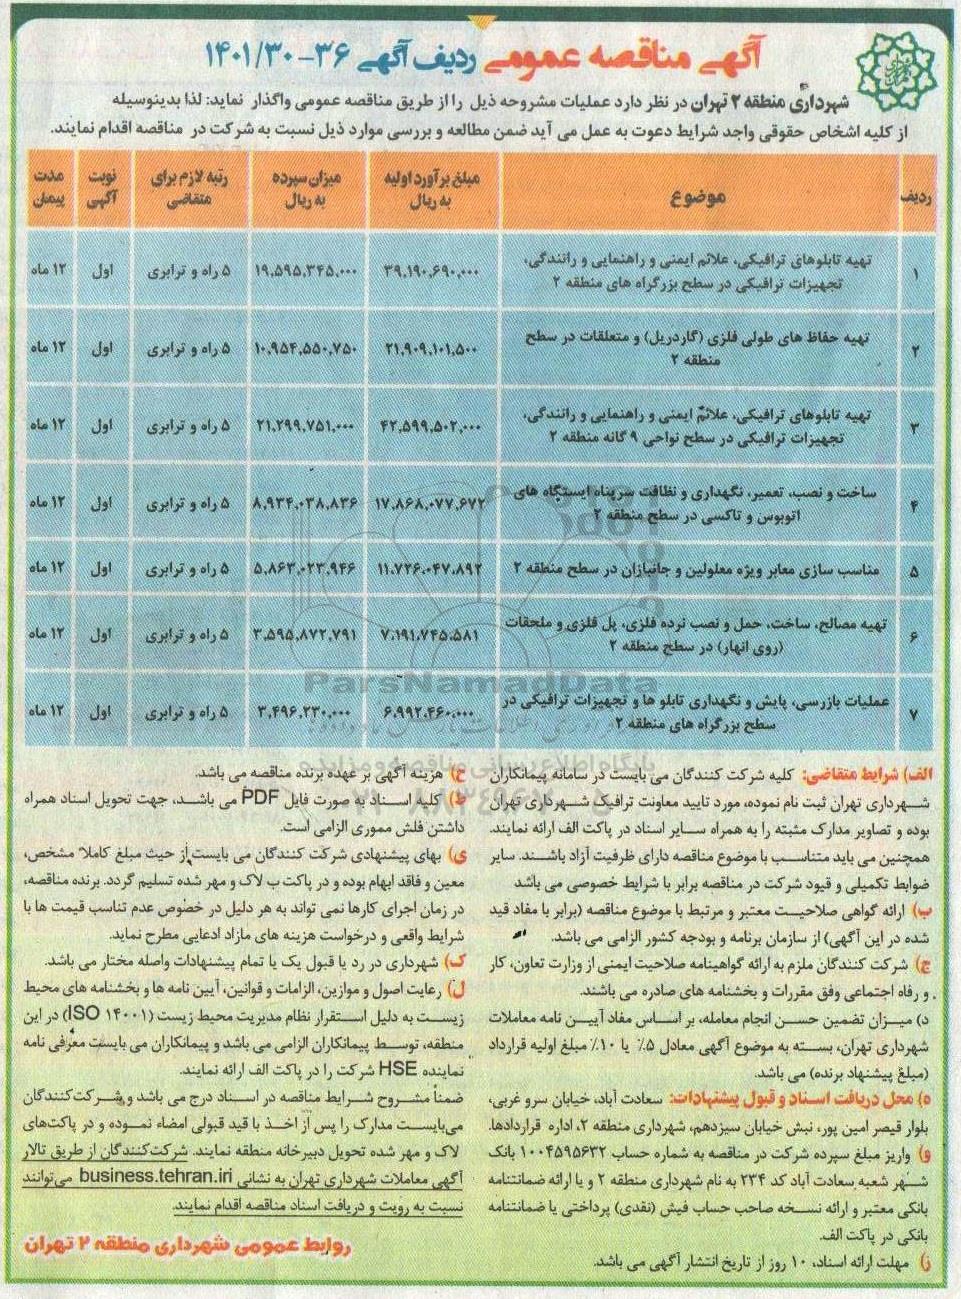 آگهی مناقصه عمومی ردیف آگهی ۳۶-۱۴۰۱/۳۰
شهرداری منطقه ۲ تهران در نظر دارد عملیات مشروحه ذیل را از طریق مناقصه عمومی واگذار نماید: لذا بدینوسیله
از کلیه اشخاص حقوقی واجد شرایط دعوت به عمل می آید ضمن مطالعه و بررسی موارد ذیل نسبت به شرکت در مناقصه اقدام نمایند.
ردیف موضوع مبلغ برآورد اولیه به ریال میزان سپرده به ریال رتبه لازم برای متقاضی نوبت آگهی مدت پیمان
۱ تهیه تابلوهای ترافیکی، علائم ایمنی و راهنمایی و رانندگی، تجهیزات ترافیکی در سطح بزرگراه های منطقه ۲ ۳۹،۱۹۰،۶۹۰،۰۰۰ ۱۹،۵۹۵،۳۴۵،۰۰۰ ۵ راه و ترابری اول ۱۲ ماه
۲ تهیه حفاظ های طولی فلزی (گاردریل) و متعلقات در سطح منطقه ۲ ۲۱،۹۰۹،۱۰۱،۵۰۰ ۱۰،۹۵۴،۵۵۰،۷۵۰ ۵ راه و ترابری اول ۱۲ ماه
۳ تهیه تابلوهای ترافیکی، علائم ایمنی و راهنمایی و رانندگی، تجهیزات ترافیکی در سطح نواحی ۹ گانه منطقه ۲ ۴۲،۵۹۹،۵۰۲،۰۰۰ ۲۱،۲۹۹،۷۵۱،۰۰۰ ۵ راه و ترابری اول ۱۲ ماه
۴ ساخت و نصب، تعمیر، نگهداری و نظافت سرپناه ایستگاه های اتوبوس و تاکسی در سطح منطقه ۲ ۱۷،۸۶۸،۰۷۷،۶۷۲ ۸،۹۳۴،۰۳۸،۸۳۶ ۵ راه و ترابری اول ۱۲ ماه
۵ مناسب سازی معابر ویژه معلولین و جانبازان در سطح منطقه ۲ ۱۱،۷۲۶،۰۴۷،۸۹۲ ۵،۸۶۳،۰۲۳،۹۴۶ ۵ راه و ترابری اول ۱۲ ماه
۶ تهیه مصالح، ساخت، حمل و نصب نرده فلزی، پل فلزی و ملحقات (روی انهار) در سطح منطقه ۲ ۷،۱۹۱،۷۴۵،۵۸۱ ۳،۵۹۵،۸۷۲،۷۹۱ ۵ راه و ترابری اول ۱۲ ماه
۷ عملیات بازرسی، پایش و نگهداری تابلو ها و تجهیزات ترافیکی در سطح بزرگراه های منطقه ۲ ۶،۹۹۲،۴۶۰،۰۰۰ ۳،۴۹۶،۲۳۰،۰۰۰ ۵ راه و ترابری اول ۱۲ ماه
ParsNamadData
پایگاه اطلاع رسانی مناقصه و مزایده
الف) شرایط متقاضی: کلیه شرکت کنندگان می بایست در سامانه پیمانکاران
شهرداری تهران ثبت نام نموده، مورد تایید معاونت ترافیک شهرداری تهران
بوده و تصاویر مدارک مثبته را به همراه سایر اسناد در پاکت الف ارائه نمایند.
همچنین می باید متناسب با موضوع مناقصه دارای ظرفیت آزاد باشند. سایر
ضوابط تکمیلی و قیود شرکت در مناقصه برابر با شرایط خصوصی می باشد
ب) ارائه گواهی صلاحیت معتبر و مرتبط با موضوع مناقصه (برابر با مفاد قید
شده در این آگهی) از سازمان برنامه و بودجه کشور الزامی می باشد.
ج) شرکت کنندگان ملزم به ارائه گواهینامه صلاحیت ایمنی از وزارت تعاون، کار
و رفاه اجتماعی وفق مقررات و بخشنامه های صادره می باشند.
د) میزان تضمین حسن انجام معامله، بر اساس مفاد آیین نامه معاملات
شهرداری تهران، بسته به موضوع آگهی معادل ۵٪ یا ۱۰٪ مبلغ اولیه قرارداد
(مبلغ پیشنهاد برنده) می باشد.
ه) محل دریافت اسناد و قبول پیشنهادات: سعادت آباد، خیابان سرو غربی،
بلوار قیصر امین پور، نبش خیابان سیزدهم، شهرداری منطقه ۲، اداره قراردادها.
و) واریز مبلغ سپرده شرکت در مناقصه به شماره حساب ۱۰۰۴۵۹۵۶۳۲ بانک
شهر شعبه سعادت آباد کد ۲۳۴ به نام شهرداری منطقه ۲ و یا ارائه ضمانتنامه
بانکی معتبر و ارائه نسخه صاحب حساب فیش (نقدی) پرداختی یا ضمانتنامه
بانکی در پاکت الف.
ز) مهلت ارائه اسناد، ۱۰ روز از تاریخ انتشار آگهی می باشد.
ح) هزینه آگهی بر عهده برنده مناقصه می باشد.
ط) کلیه اسناد به صورت فایل PDF می باشد، جهت تحویل اسناد همراه
داشتن فلش مموری الزامی است.
ی) بهای پیشنهادی شرکت کنندگان می بایست از حیث مبلغ کاملا مشخص،
معین و فاقد ابهام بوده و در پاکت ب لاک و مهر شده تسلیم گردد. برنده مناقصه،
در زمان اجرای کارها نمی تواند به هر دلیل در خصوص عدم تناسب قیمت ها با
شرایط واقعی و درخواست هزینه های مازاد ادعایی مطرح نماید.
ک) شهرداری در رد یا قبول یک یا تمام پیشنهادات واصله مختار می باشد.
ل) رعایت اصول و موازین، الزامات و قوانین، آیین نامه ها و بخشنامه های محیط
زیست به دلیل استقرار نظام مدیریت محیط زیست (ISO ۱۴۰۰۱) در این
منطقه، توسط پیمانکاران الزامی می باشد و پیمانکاران می بایست معرفی نامه
نماینده HSE شرکت را در پاکت الف ارائه نمایند.
ضمناً مشروح شرایط مناقصه در اسناد درج می باشد و شرکت کنندگان
می‌بایست مدارک را پس از اخذ با قید قبولی امضاء نموده و در پاکت‌های
لاک و مهر شده تحویل دبیرخانه منطقه نمایند. شرکت‌کنندگان از طریق تالار
آگهی معاملات شهرداری تهران به نشانی business.tehran.iri می‌توانند
نسبت به رویت و دریافت اسناد مناقصه اقدام نمایند.
روابط عمومی شهرداری منطقه ۲ تهران